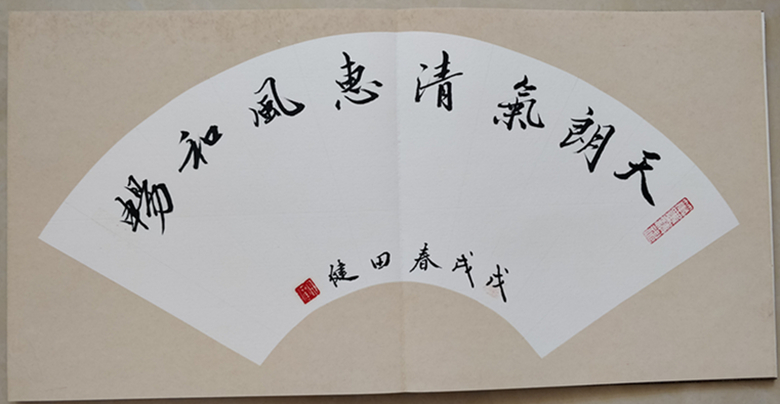 天朗氣清惠風和暢
戊戌春田健